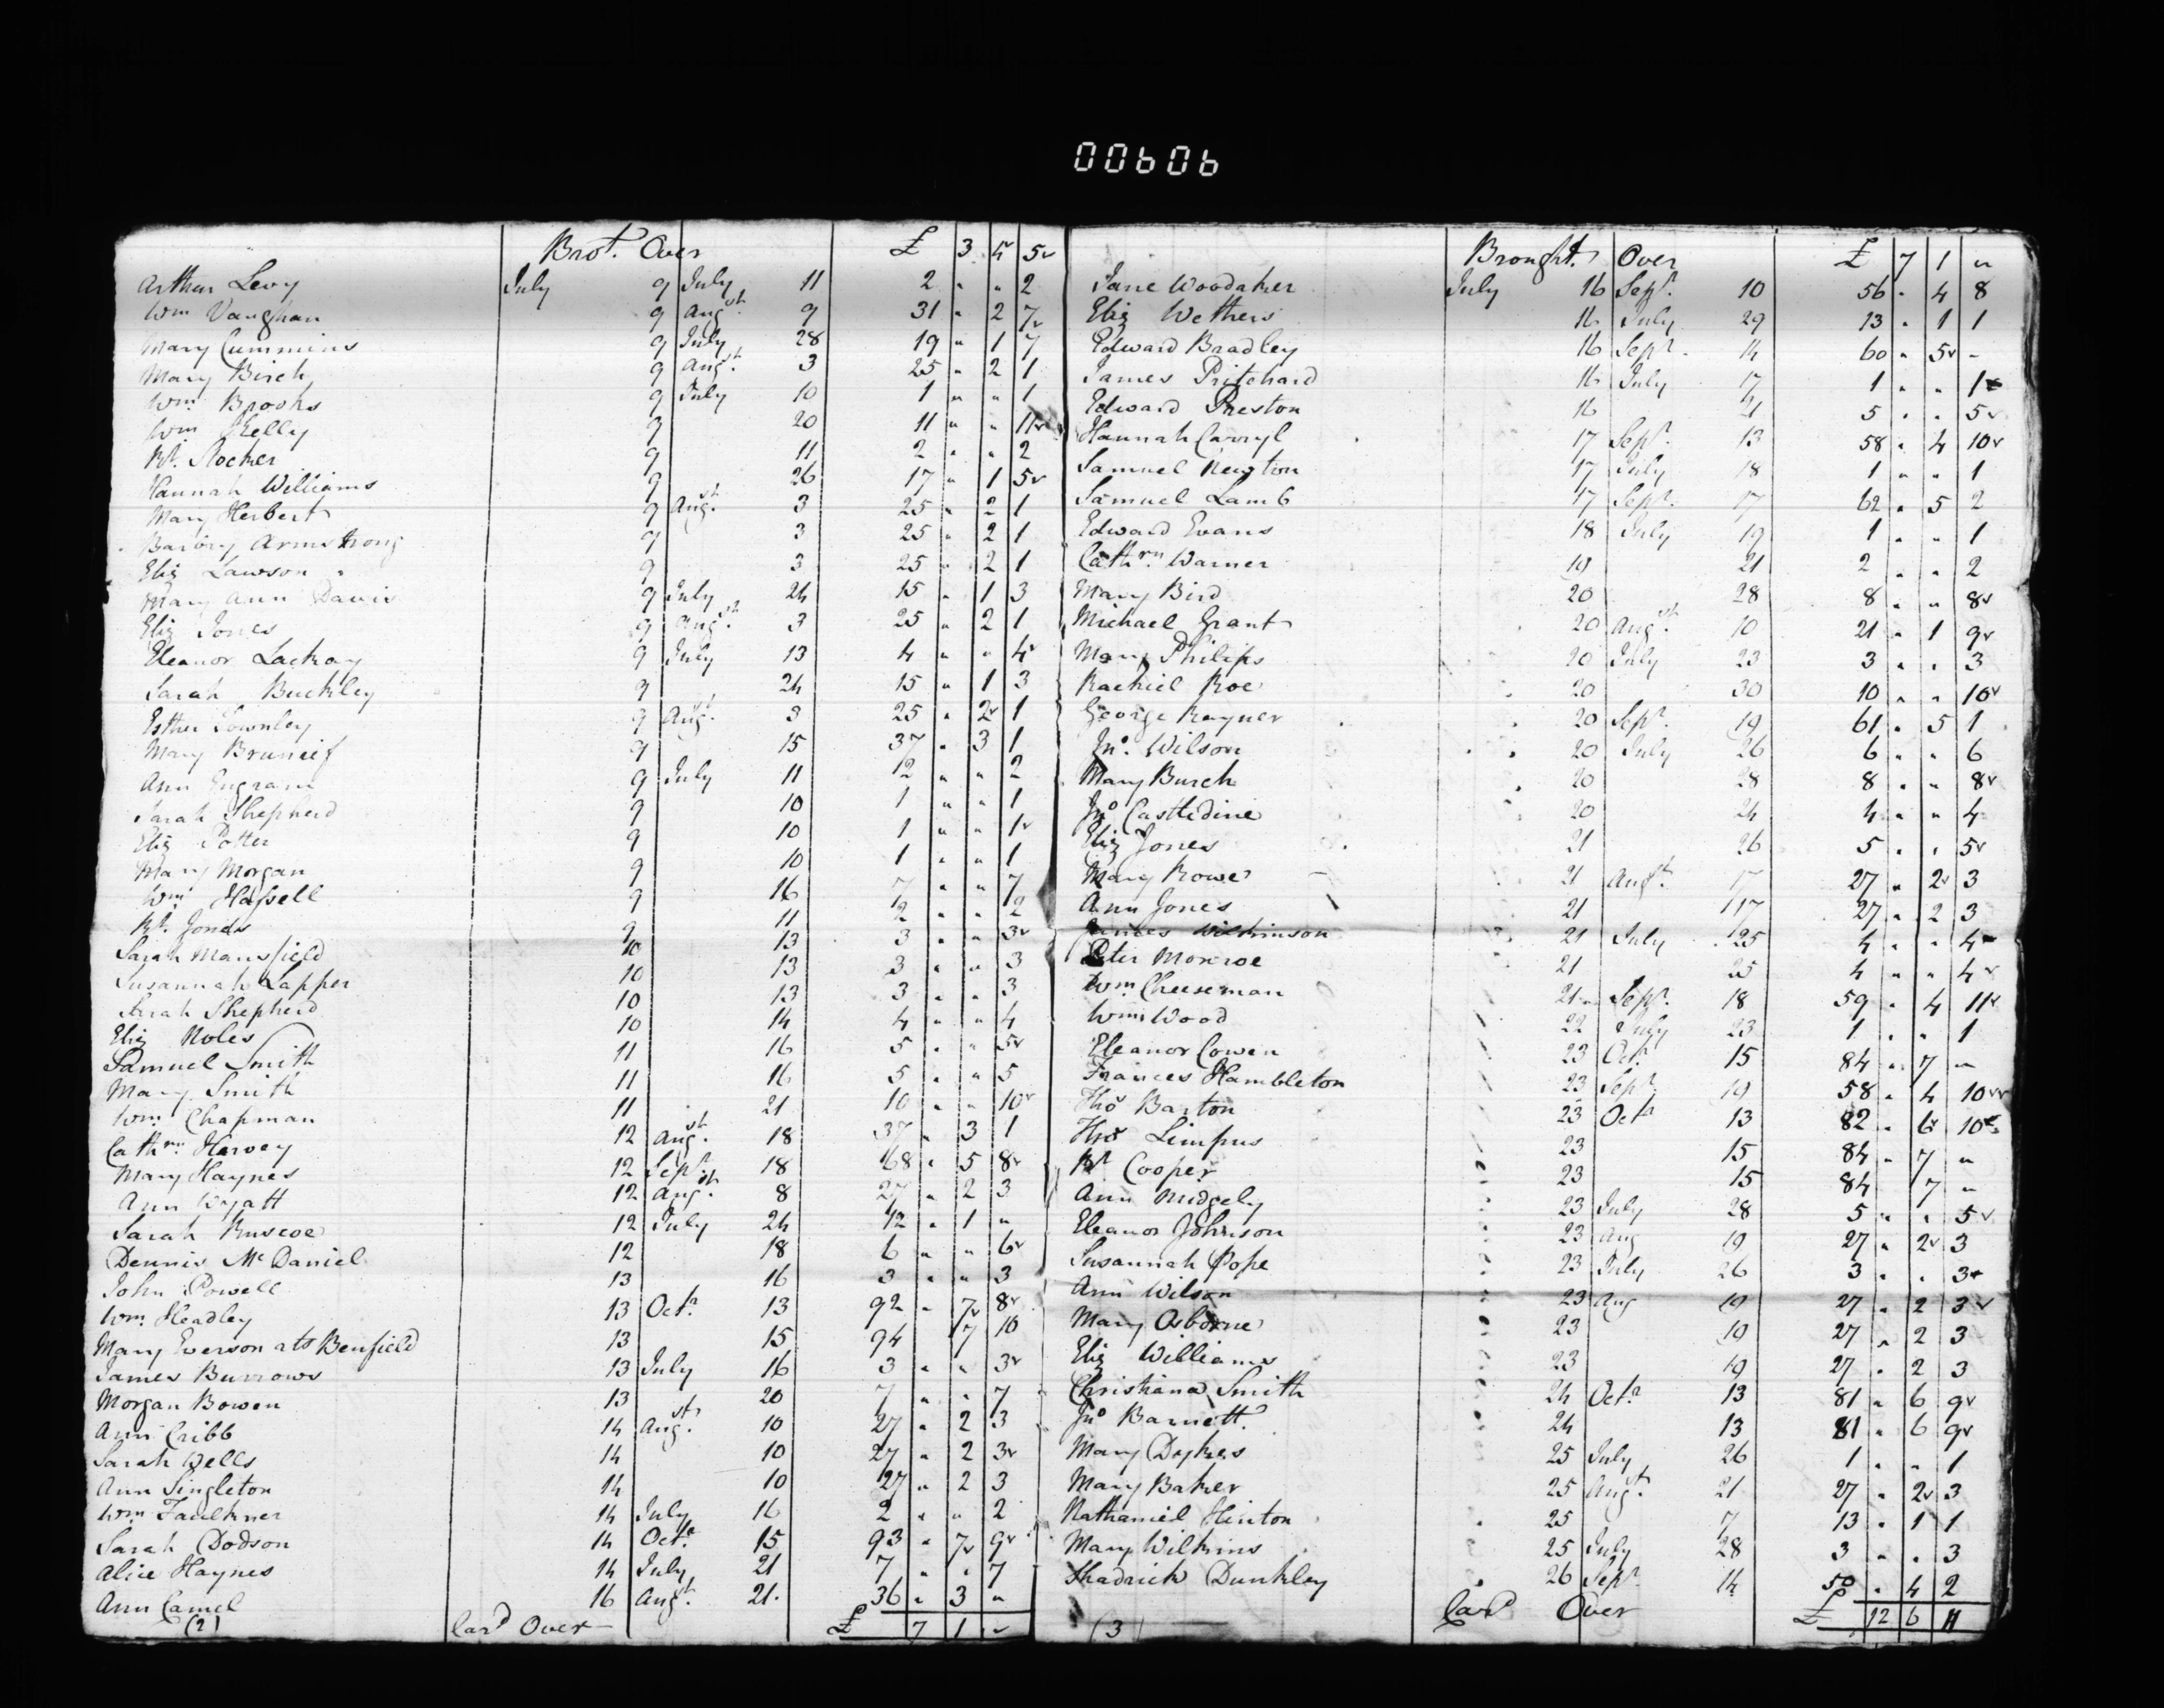 00606
Brot. Over £ 3 4 5
Arthur Levy July 9 July 11 2 " " 2
Wm Vaughan 9 Augst. 9 31 " 2 7
Mary Cummins 9 July 28 19 " 1 7
Mary Birch 9 Augst. 3 25 " 2 1
Wm. Brooks 9 July 10 1 " " 1
Wm Kelly 9 20 11 " " 11
Rt. Stocker 9 11 2 " " 2
Hannah Williams 9 26 17 " 1 5
Mary Herbert 9 Augst. 3 25 " 2 1
Barbry Armstrong 9 3 25 " 2 1
Eliz Lawson 9 3 25 " 2 1
Mary Ann Davis 9 July 24 15 " 1 3
Eliz Jones 9 Augst. 3 25 " 2 1
Eleanor Lackay 9 July 13 4 " " 4
Sarah Buckley 9 24 15 " 1 3
Esther Townley 9 Augst. 3 25 " 2 1
Mary 9 15 37 " 3 1
Ann Engram 9 July 11 12 " " 2
Sarah Shepherd 9 10 1 " " 1
Eliz Potter 9 10 1 " " 1
Mary Morgan 9 10 1 " " 1
Wm Hassell 9 16 7 " " 7
Rt. Jones 9 11 2 " " 2
Sarah Mansfield 10 13 3 " " 3
Susannah Lapper 10 13 3 " " 3
Sarah Shepherd 10 13 3 " " 3
Eliz Noles 10 14 4 " " 4
Samuel Smith 11 16 5 " " 5
Mary Smith 11 16 5 " " 5
Wm. Chapman 11 21 10 " " 10
Cathrn. Harvey 12 Augst. 18 37 " 3 1
Mary Haynes 12 Sepr. 18 68 " 5 8
Ann Wyatt 12 Augst. 8 27 " 2 3
Sarah Ruscoe 12 July 24 12 " 1 "
Dennis Mc Daniel 12 18 6 " " 6
John Powell 13 16 3 " " 3
Wm. Headley 13 Octr. 13 92 " 7 8
Mary Everson als Benfield 13 15 94 7 10
James Burrows 13 July 16 3 " " 3
Morgan Bowen 13 20 7 " " 7
Ann Cribb 14 Augst. 10 27 " 2 3
Sarah Wells 14 10 27 " 2 3
Ann Singleton 14 10 27 " 2 3
Wm Faulkner 14 July 16 2 " " 2
Sarah Dodson 14 Octr. 15 93 " 7 9
Alice Haynes 14 July 21 7 " " 7
Ann Camel 16 Augst. 21. 36 " 3 "
(2) Card Over £ 7 1 "
Brought. Over £ 7 1 "
Jane Woodaker July 16 Sepr. 10 56 " 4 8
Eliz Wethers 16 July 29 13 " 1 1
Edward Bradley 16 Sepr. 14 60 " 5 "
James Pritchard 16 July 17 1 " " 1
Edward Preston 16 21 5 " " 5
Hannah Carryl 17 Sepr. 13 58 " 4 10
Samuel Newton 17 July 18 1 " " 1
Samuel Lamb 17 Sepr. 17 62 " 5 2
Edward Evans 18 July 19 1 " " 1
Cathrn. Warner 19 21 2 " " 2
Mary Bird 20 28 8 " " 8
Michael Grant 20 Augst. 10 21 " 1 9
Mary Philips 20 July 23 3 " " 3
Rachiel Roe 20 30 10 " " 10
George Rayner 20 Sepr. 19 61 " 5 1
Jno. Wilson 20 July 26 6 " " 6
Mary Burch 20 28 8 " " 8
Jno Castledine 20 24 4 " " 4
Eliz Jones 21 26 5 " " 5
Mary Rowe 21 Augt. 17 27 " 2 3
Ann Jones 21 17 27 " 2 3
James Wilkinson 21 July 25 4 " " 4
Peter Monroe 21 25 4 " " 4
Wm Cheeseman 21 Sepr. 18 59 " 4 11
Wm Wood 22 July 23 1 " " 1
Eleanor Cowen 23 Octr. 15 84 " 7 "
Frances Hambleton 23 Sepr. 19 58 " 4 10
Thos Barton 23 Octr 13 82 " 6 10
Thos Limpus 23 15 84 " 7 "
Rt Cooper 23 15 84 7 "
Ann Midgely 23 July 28 5 " " 5
Eleanor Johnson 23 Aug 19 27 " 2 3
Susannah Pope 23 July 26 3 " " 3
Ann Wilson 23 Aug 19 27 " 2 3
Mary Osborne 23 19 27 " 2 3
Eliz Williams 23 19 27 " 2 3
Christiana Smith 24 Octr. 13 81 " 6 9
Jno Barnett 24 13 81 " 6 9
Mary Dykes 25 July 26 1 " " 1
Mary Baker 25 Augst. 21 27 " 2 3
Nathaniel Hinton 25 7 13 " 1 1
Mary Wilkins 25 July 28 3 " " 3
Shadrick Dunkley 26 Sepr. 14 50 " 4 2
(3) Card Over £ 12 6 11